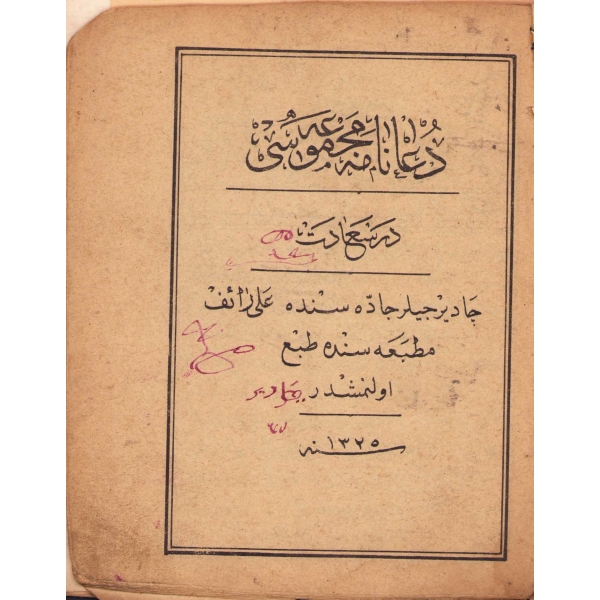 دُعانامه مجموعه سى
در سعادت
چاديرجيلر جاده سنده على رائف
مطبعه سنده طبع
اولنمشدر
سنه ١٣٢٥